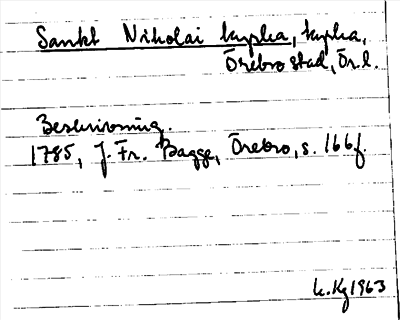 Sankt Nikolai kyrka, kyrka,
Örebro stad, Ör.l.
Beskrivning.
1785, J. Fr. Bagge, Örebro, s. 166f.
k.Kg 1963